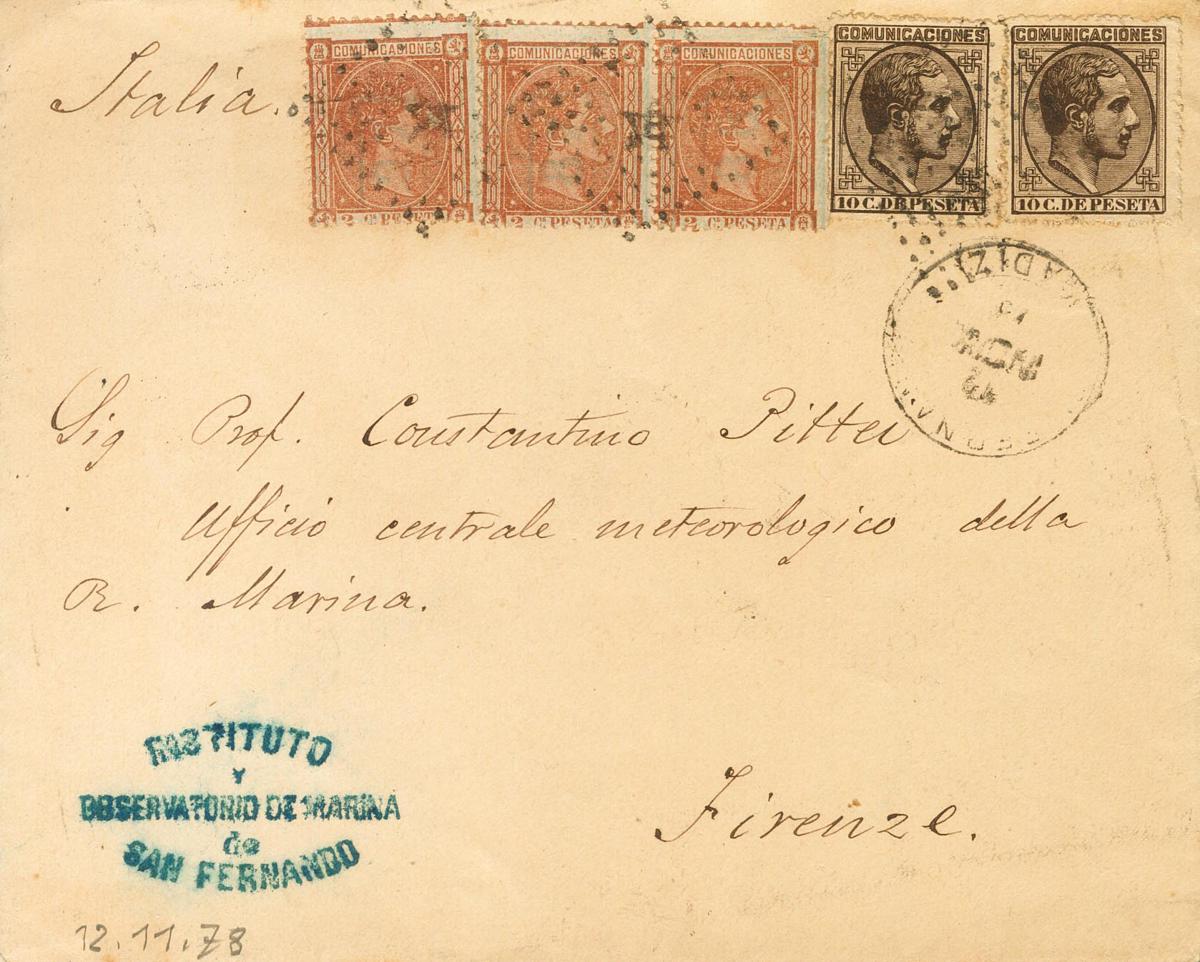 Italia.
COMUNICACIONES COMUNICACIONES COMUNICACIONES COMUNICACIONES COMUNICACIONES
2 Cs PESETA 2 Cs PESETA 2 Cs PESETA 10 C. DE PESETA 10 C. DE PESETA
Sig Prof. Constantino Pittei
Ufficio centrale meteorologico della
R. Marina.
INSTITUTO
Y
OBSERVATORIO DE MARINA
de
SAN FERNANDO
Firenze.
12.11.78